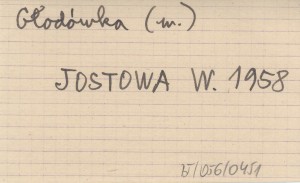 Głodówka (m.)
JOSTOWA W. 1958
BJ/OJG/0451